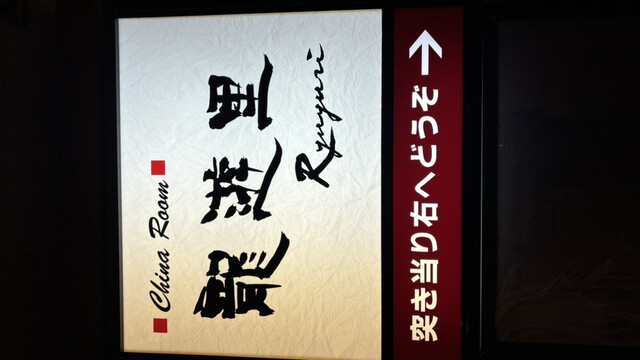 ■ China Room ■
龍遊里
Ryuyuri
突き当り右へどうぞ →